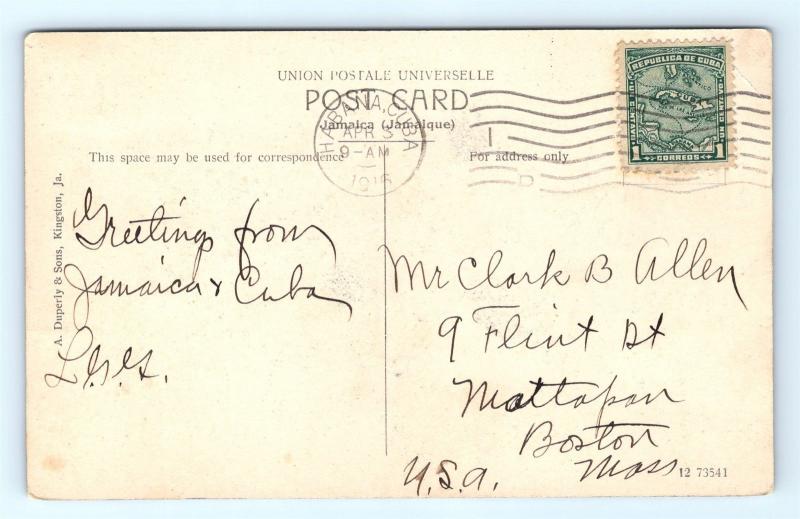 UNION POSTALE UNIVERSELLE
POST CARD
Jamaica (Jamaique)
This space may be used for correspondence
For address only
HABANA, CUBA
APR 3
9-AM
REPUBLICA DE CUBA
1 CORREOS 1
A. Duperly & Sons, Kingston, Ja.
Greetings from
Jamaica & Cuba
Mr Clark B Allen
9 Flint St
Mattapan
Boston
Mass
U.S.A.
12 73541